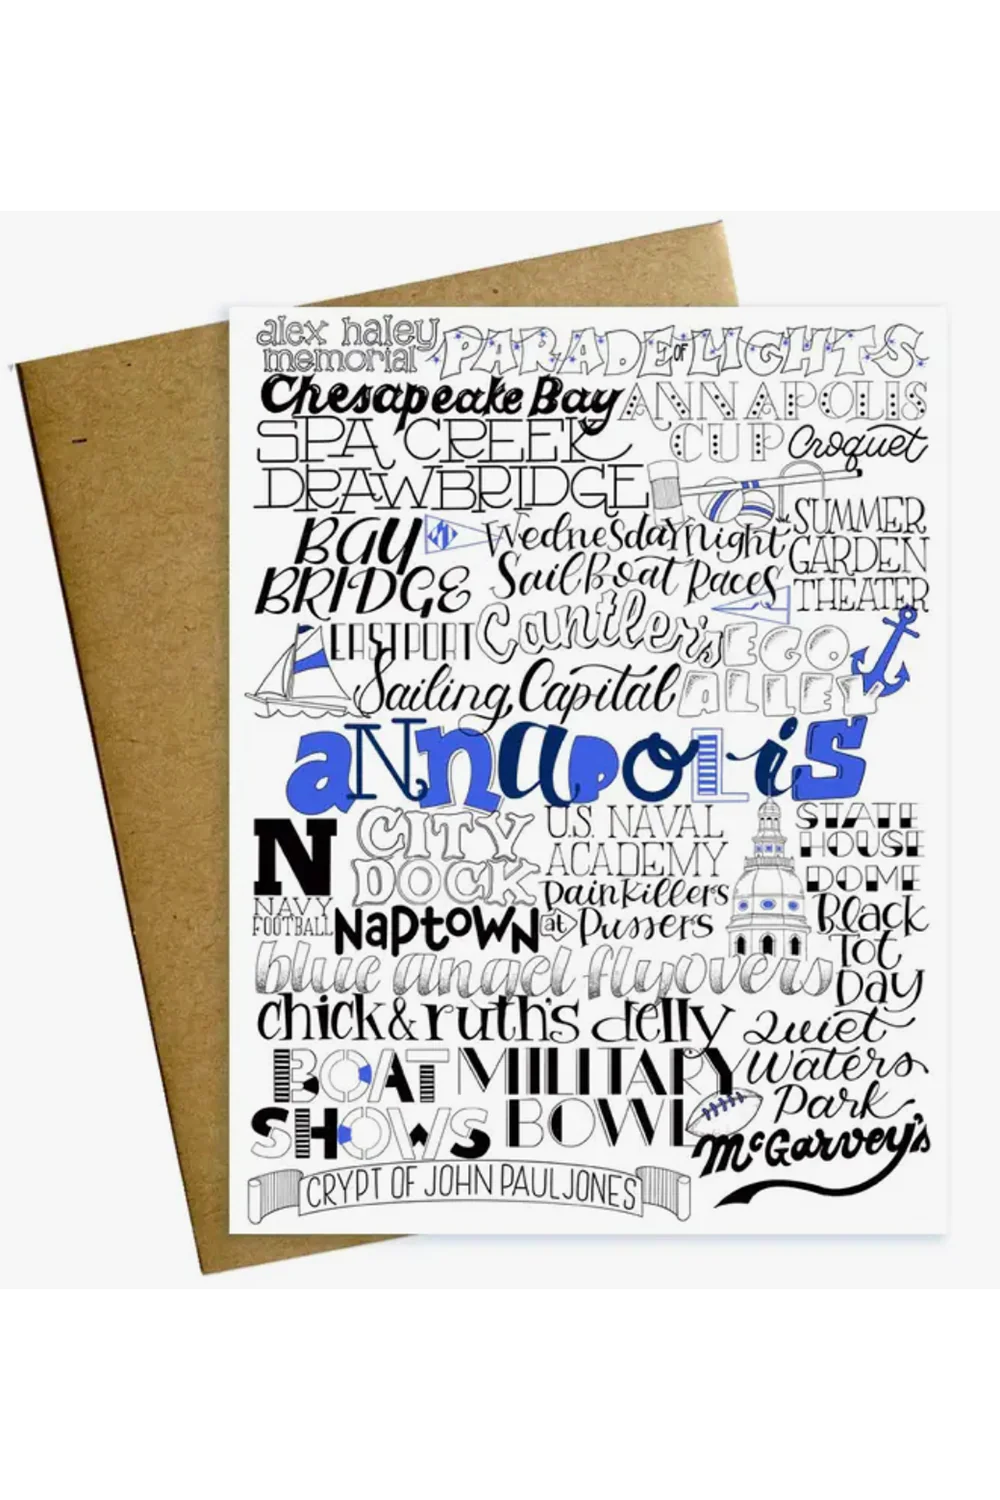 alex haley
memorial
PARADE OF LIGHTS
Chesapeake Bay
ANNAPOLIS
CUP Croquet
SPA CREEK
DRAWBRIDGE
BAY
BRIDGE
Wednesday Night
SailBoat Races
SUMMER
GARDEN
THEATER
EASTPORT
Cantler's
EGO
ALLEY
Sailing Capital
aNNaPOLiS
N
NAVY
FOOTBALL
CITY
DOCK
U.S. NAVAL
ACADEMY
Painkillers
at Pussers
STATE
HOUSE
DOME
Naptown
Black
Tot
Day
blue angel flyovers
chick & ruth's delly
Quiet
Waters
Park
BOAT
SHOWS
MILITARY
BOWL
McGarvey's
CRYPT OF JOHN PAUL JONES